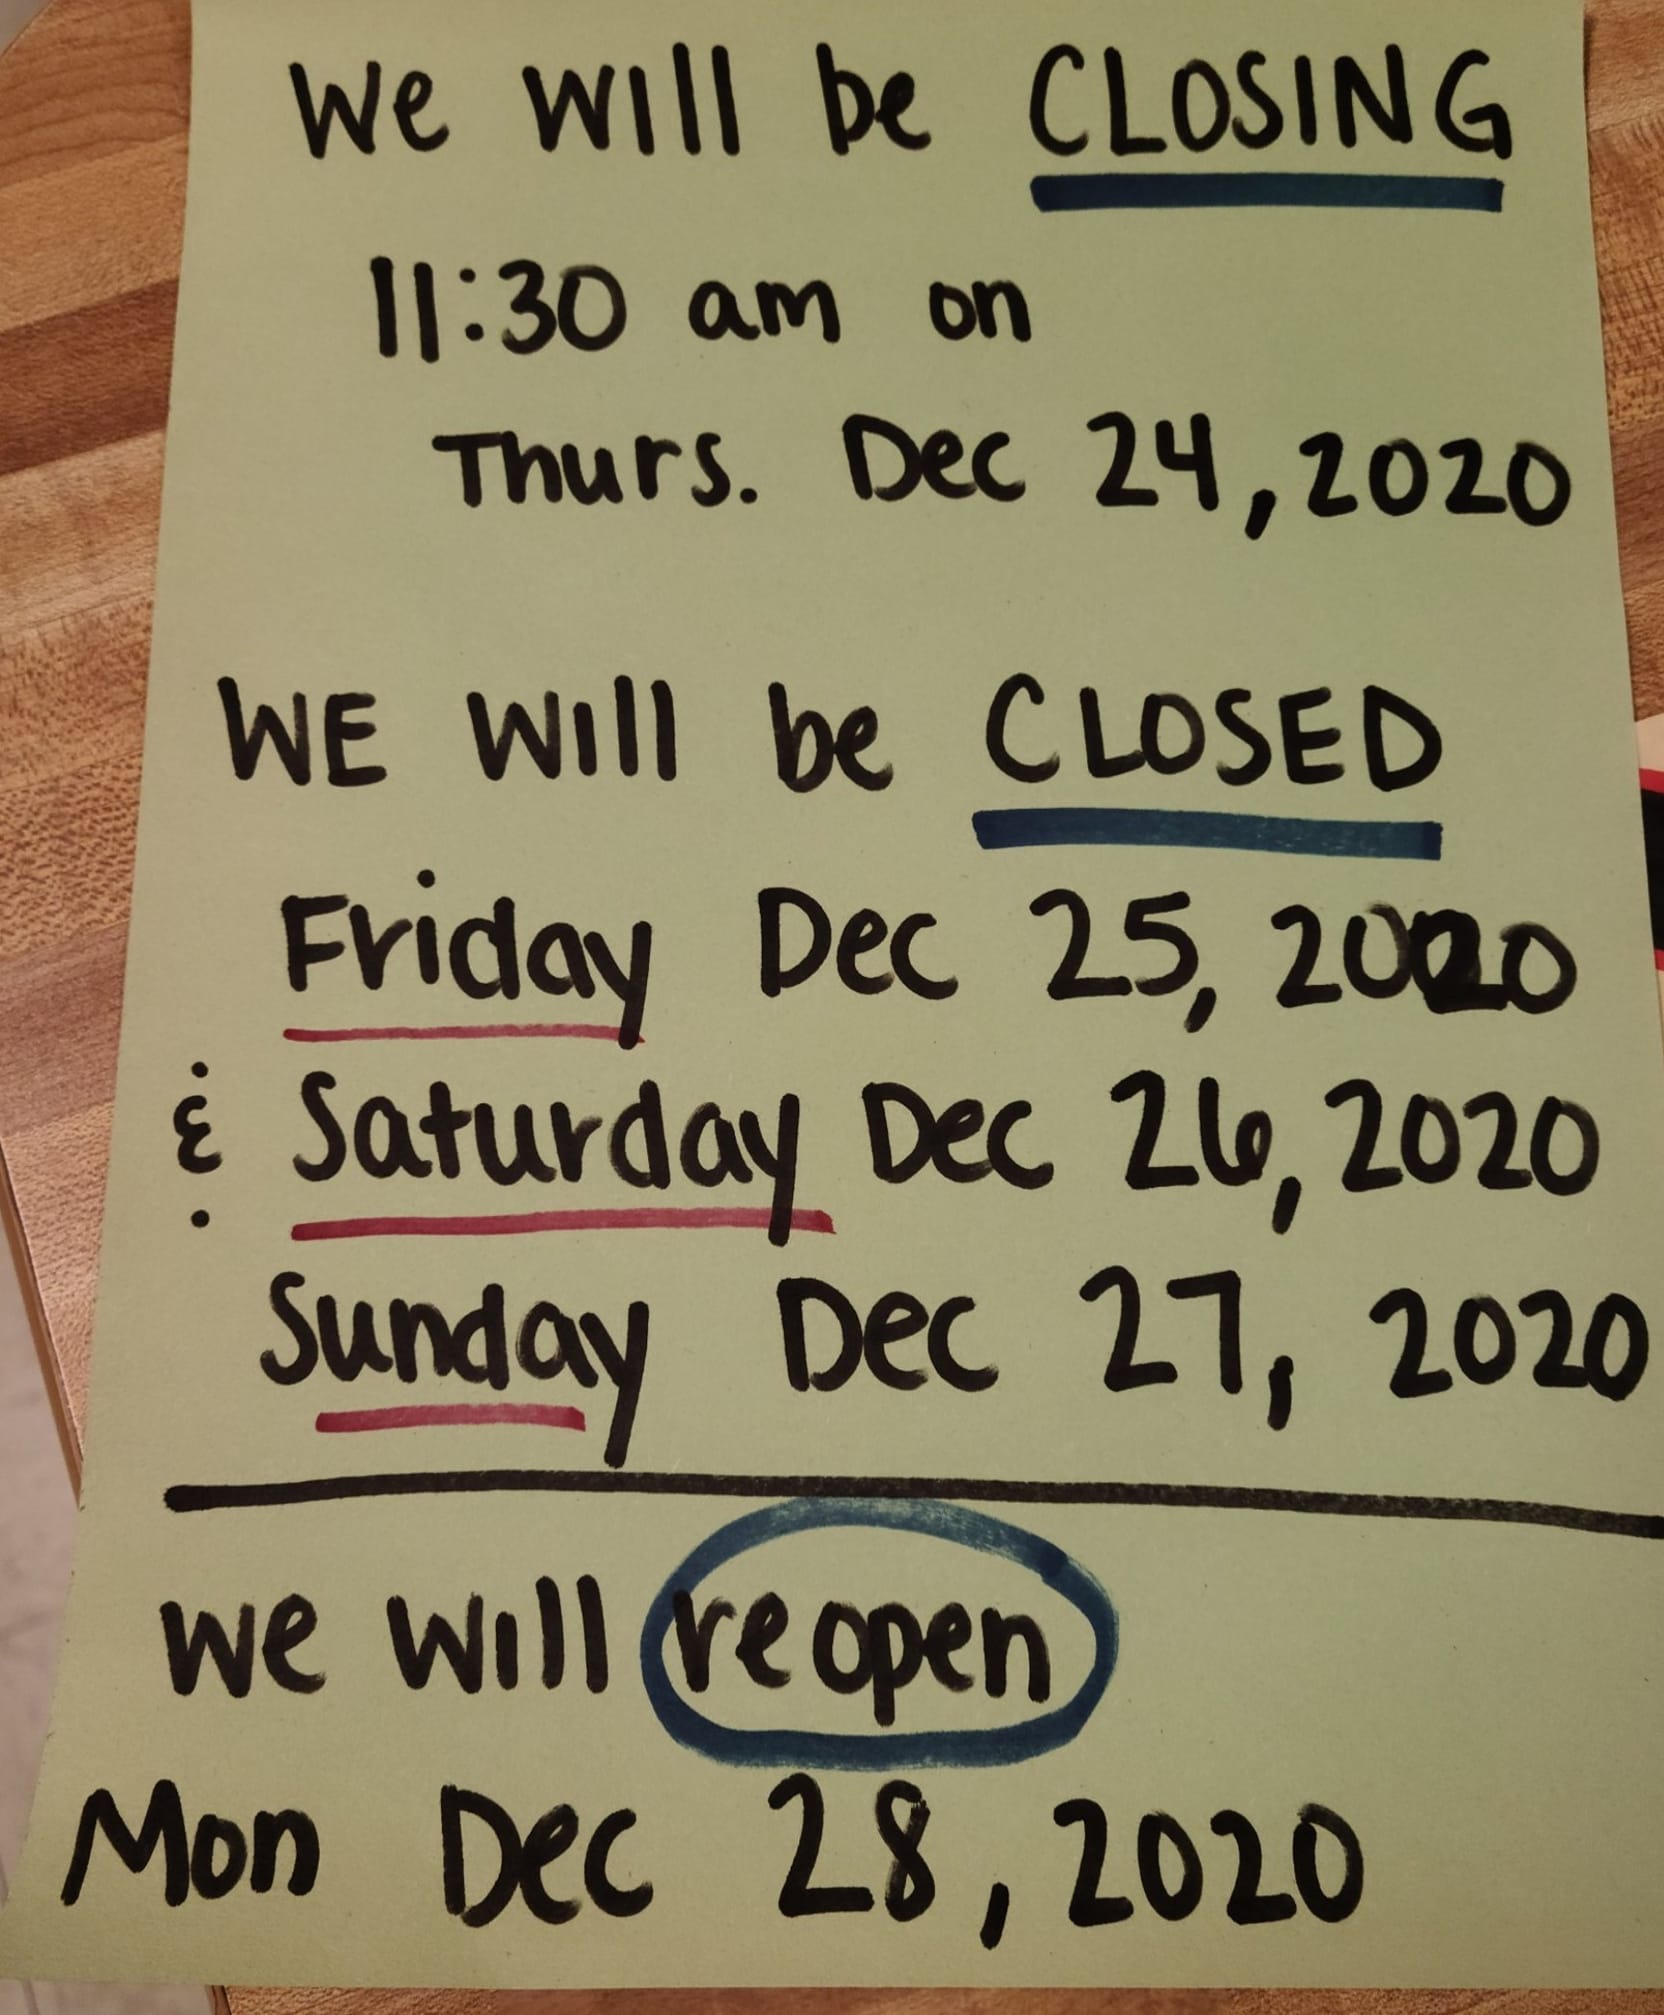 We will be CLOSING
11:30 am on
Thurs. Dec 24, 2020
WE will be CLOSED
Friday Dec 25, 2020
& Saturday Dec 26, 2020
Sunday Dec 27, 2020
We will reopen
Mon Dec 28, 2020